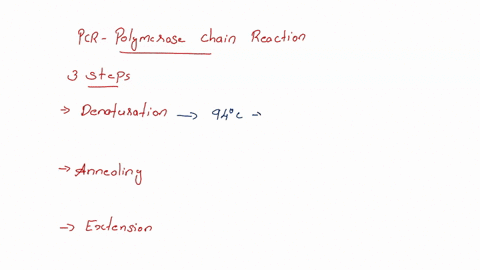 PCR - Polymerase Chain Reaction
3 steps
→ Denaturation → 94°C →
→ Annealing
→ Extension